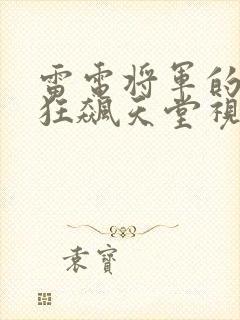 雷電将軍的
狂飆天堂視
袁寶